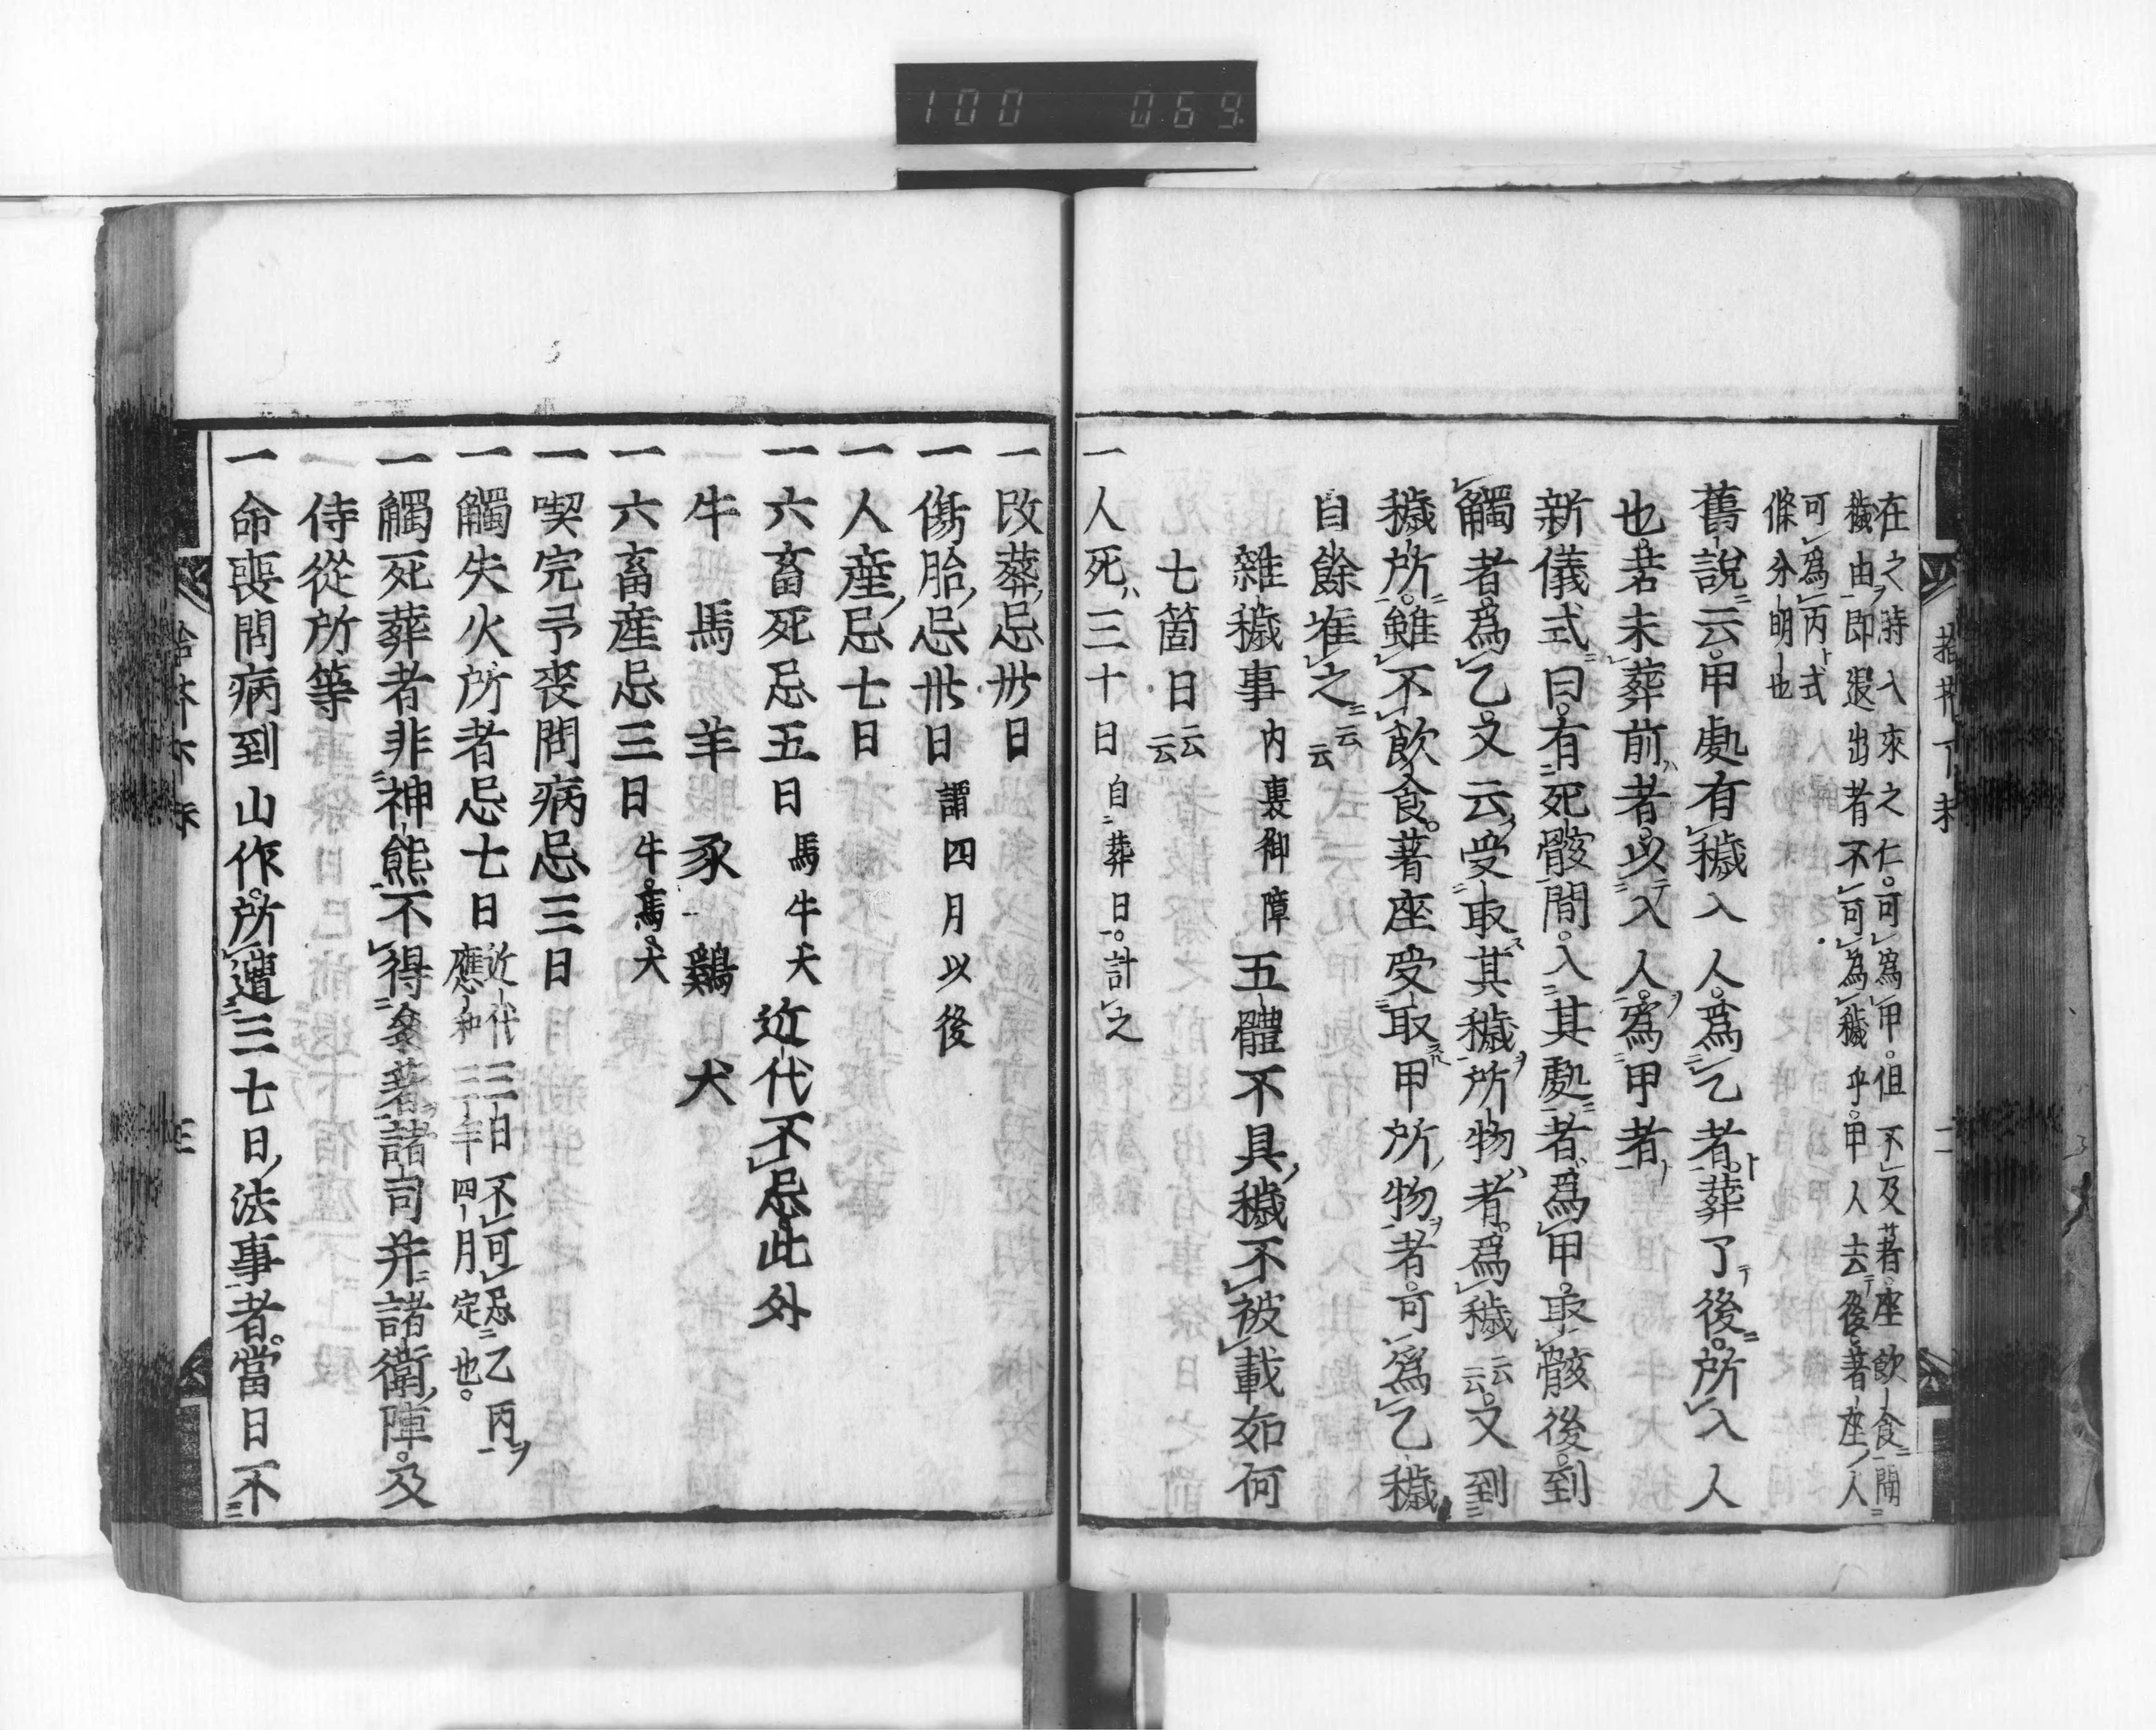 100 069
在之時入來之仁。可爲甲。但不及著座飲食間
穢由即退出者不可爲穢乎。甲人去後著座人
可爲丙式
條分明也
舊說云。甲處有穢入人。爲乙者。葬了後。所入人
也。若未葬前者。以入人。爲甲者
新儀式曰。有死骸間。入其處者。爲甲。取骸後。到
觸者。爲乙。又云。受取其穢所物者。爲穢云云。又到
穢所。雖不飲食。著座受取甲所物者。可爲乙穢
自餘准之云云
雜穢事 內裏御障 五體不具穢不被載如何
七箇日云云
一人死三十日 自葬日。計之
一改葬忌卅日
一傷胎忌卅日 謂四月以後
一人產忌七日
一六畜死忌五日 馬牛犬 近代不忌此外
牛 馬 羊 豕 鷄 犬
一六畜產忌三日 牛。馬。犬
一喫完弔喪問病忌三日
一觸失火所者忌七日 近代三日不可忌乙丙
應和三年四月定也。
一觸死葬者非神態不得參著諸司并諸衛陣。及
侍從所等
一命喪問病到山作。所遭三七日法事者。當日不